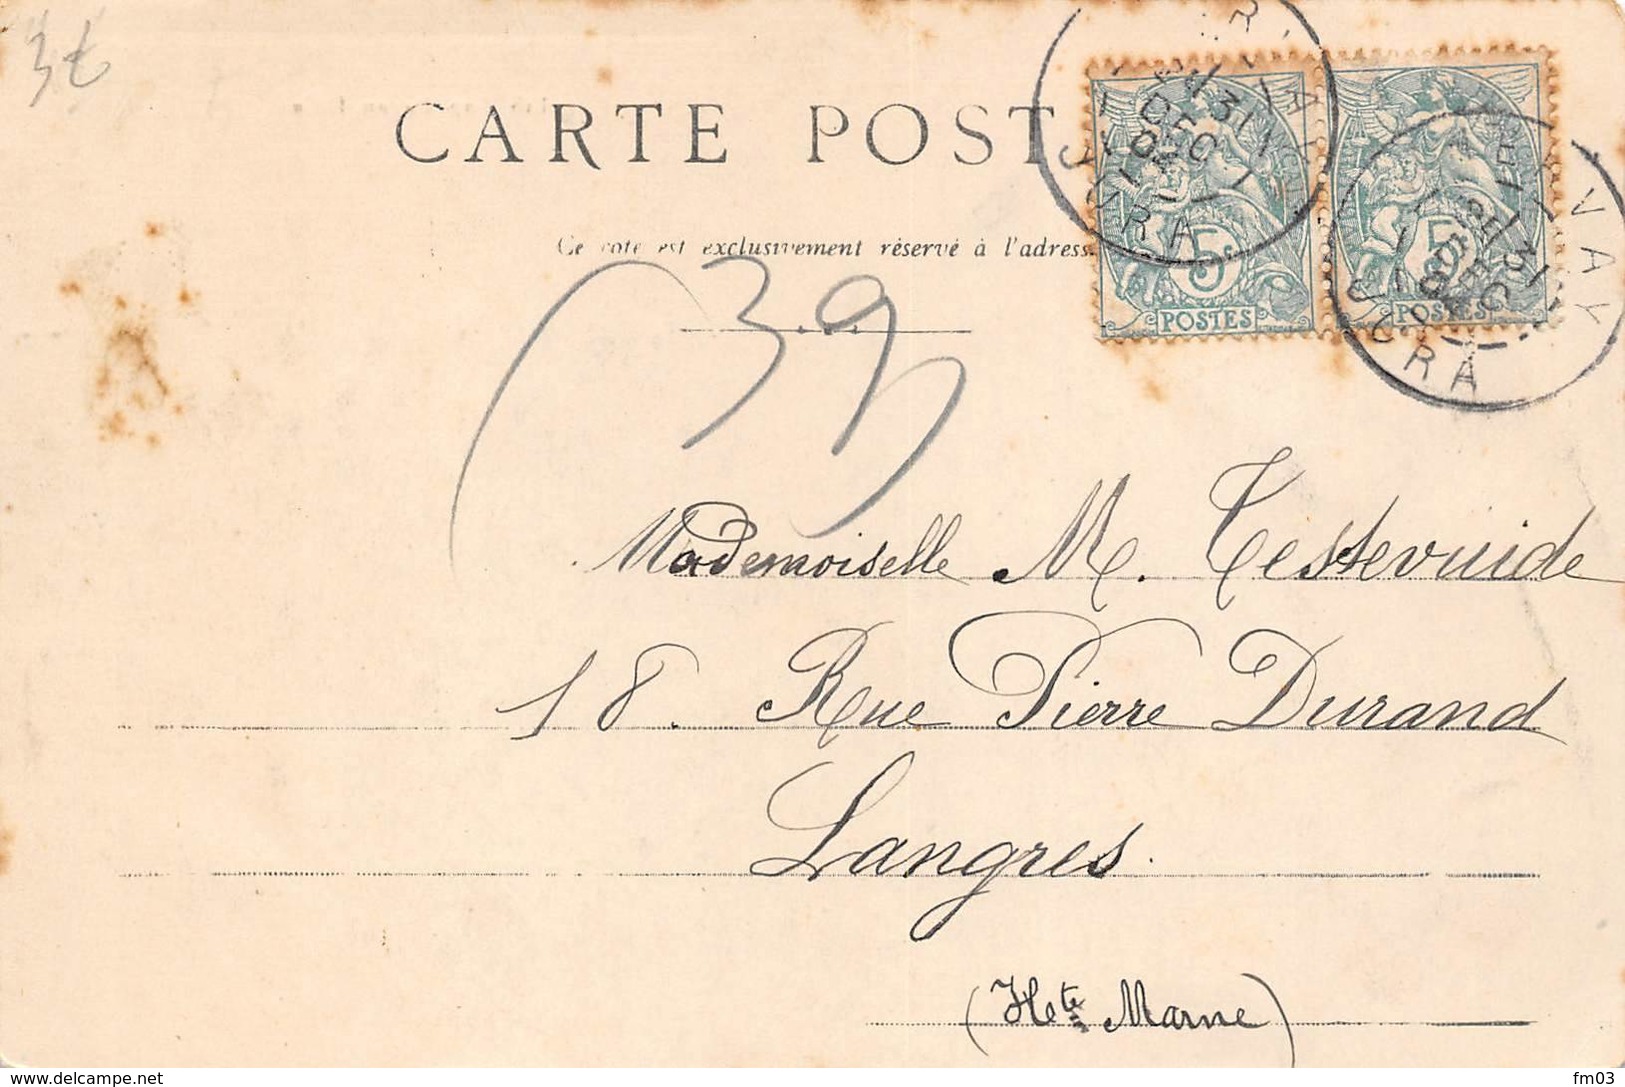 3€
CARTE POST
Ce coté est exclusivement réservé à l'adress
39
5c
POSTES
5
POSTES
31
DEC
04
JURA
VAY
31
DEC
04
JURA
Mademoiselle M. Tessevuide
18. Rue Pierre Durand
Langres.
(Hte Marne)
www.delcampe.net
fm03